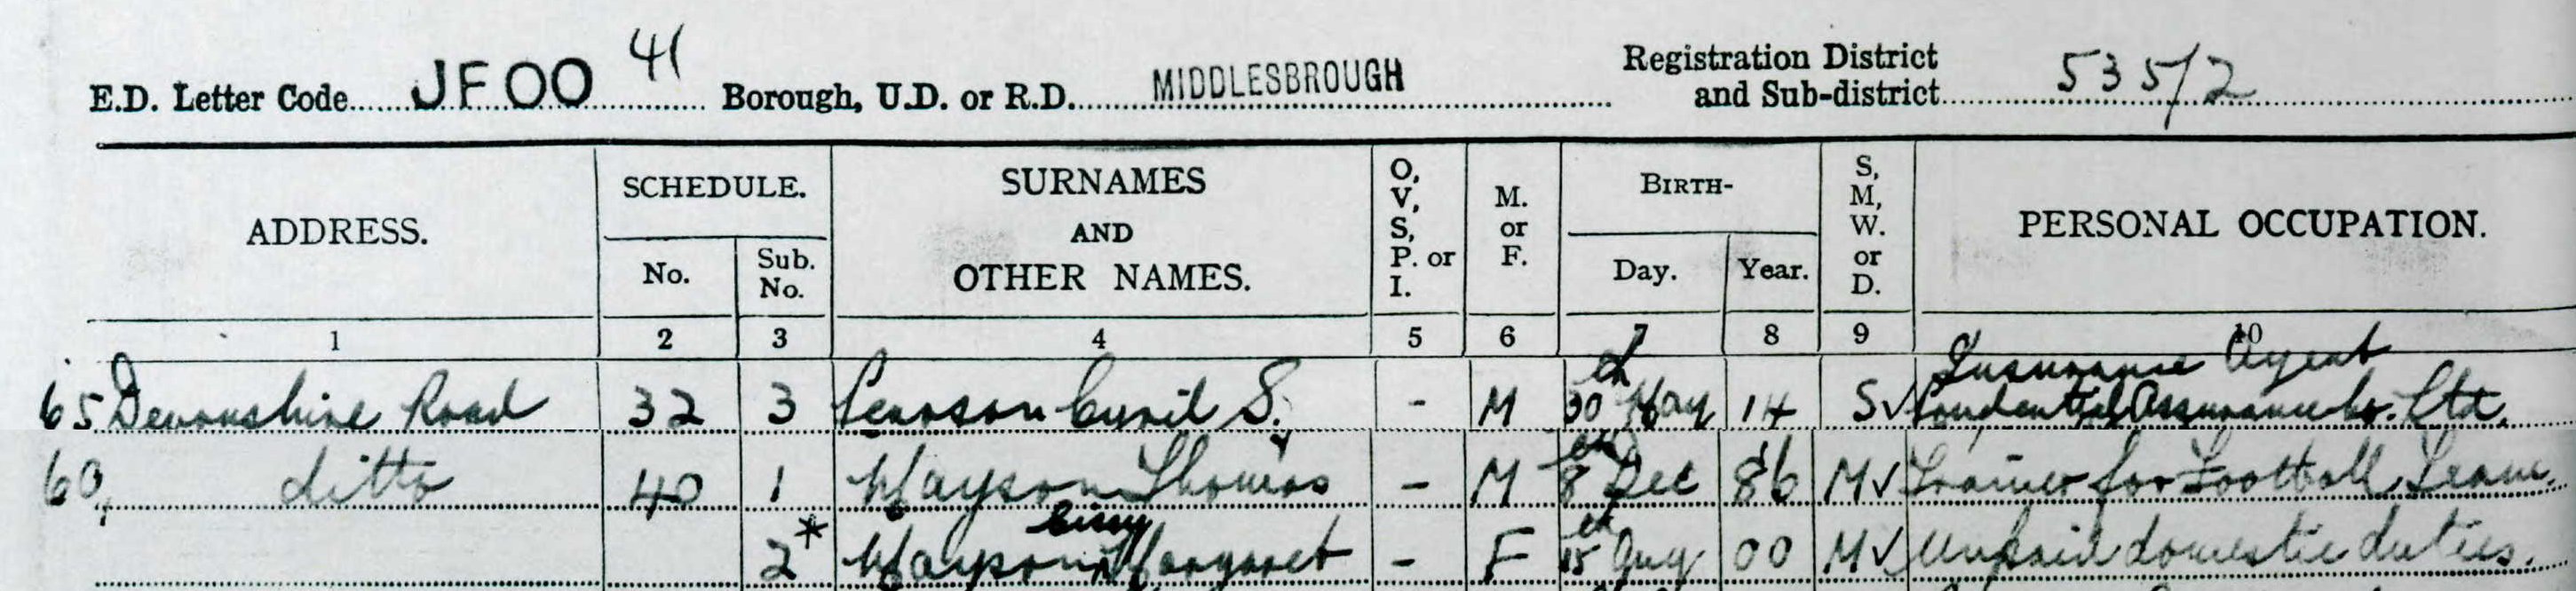 E.D. Letter Code JFOO 41 Borough, U.D. or R.D. MIDDLESBROUGH Registration District and Sub-district 535/2
ADDRESS. SCHEDULE. No. Sub. No. SURNAMES AND OTHER NAMES. O, V, S, P. or I. M. or F. BIRTH- Day. Year. S, M, W. or D. PERSONAL OCCUPATION.
1 2 3 4 5 6 7 8 9 10
Insurance Agent
65 Devonshire Road 32 3 Pearson Cyril S. - M 30th May 14 S✓ Prudential Assurance Co. Ltd.
60, ditto 40 1 Mayson Thomas - M 8th Dec 86 M✓ Trainer for Football Team.
Cissy
2* Mayson Margaret - F 15th Aug 00 M✓ Unpaid domestic duties.